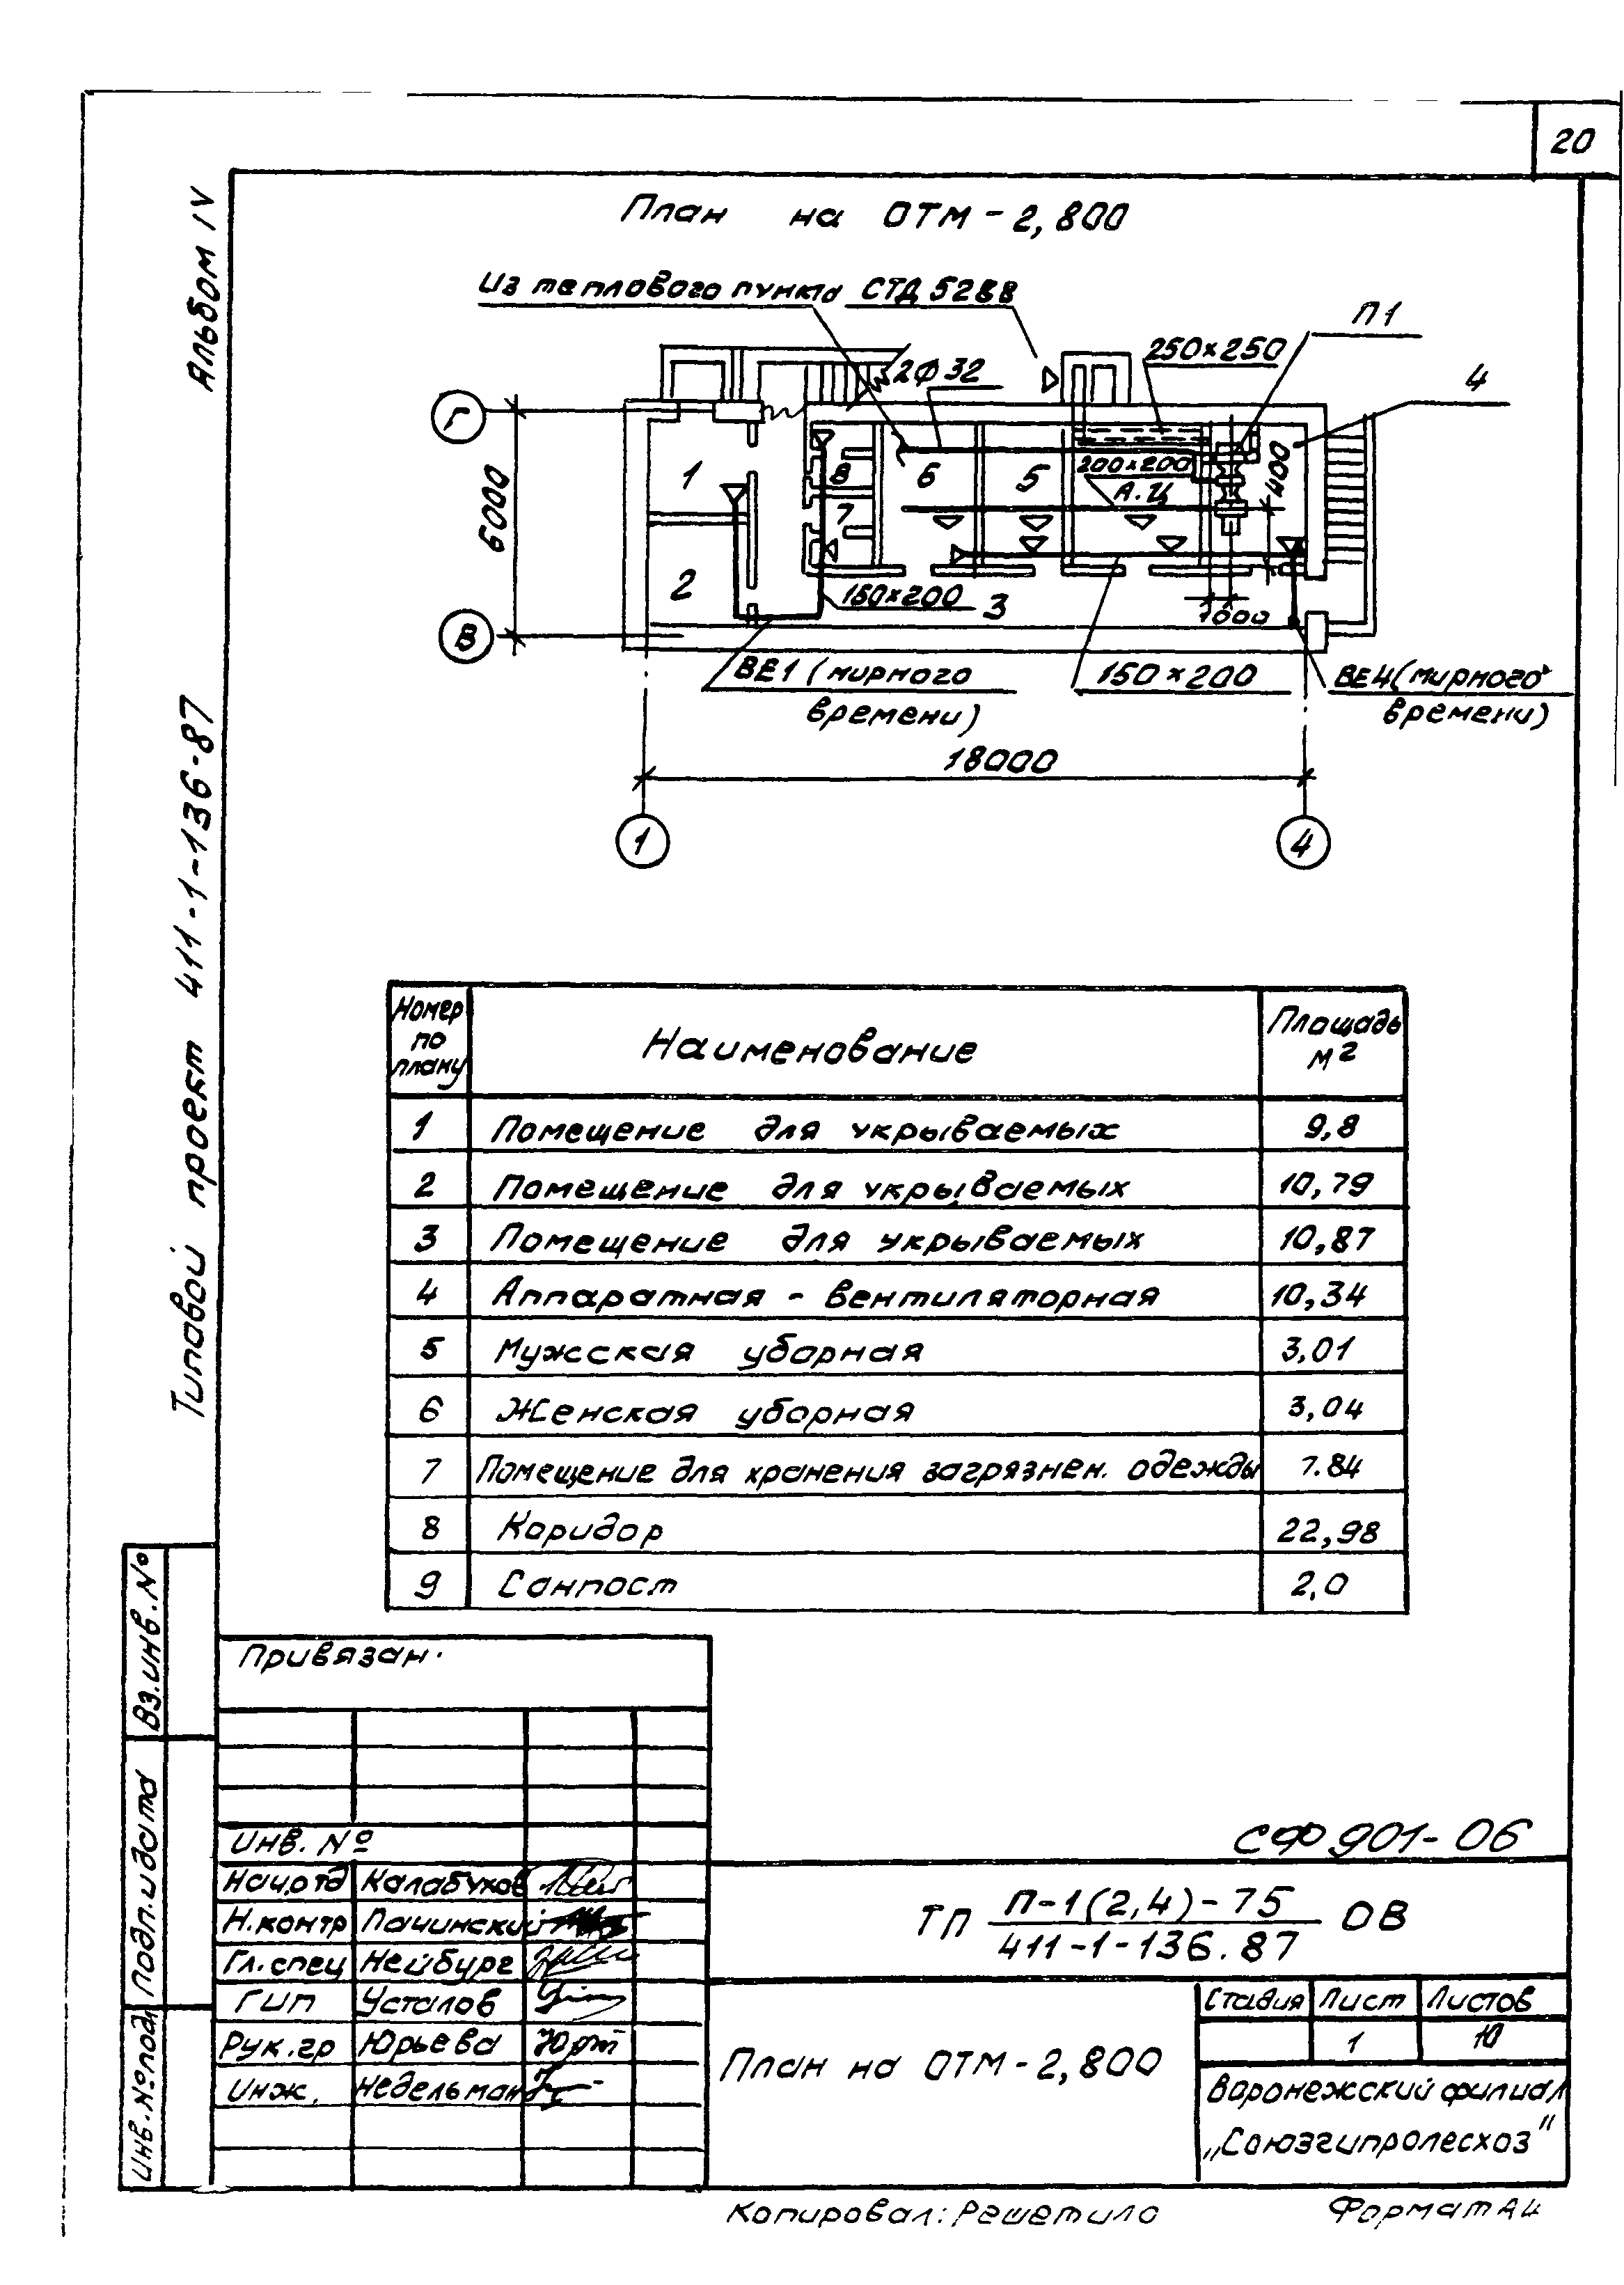 20
Альбом IV
Типовой проект 411-1-136-87
План на ОТМ - 2,800
Из теплового пункта СТД 5288
П1
250×250
2Ф32
4
Г
6000
В
1
2
8
7
6
5
200×200
А.Ц
400
150×200
3
1000
ВЕ1 (мирного
времени)
150×200
ВЕ4 (мирного
времени)
18000
1
4
Номер по плану Наименование Площадь м2
1 Помещение для укрываемых 9,8
2 Помещение для укрываемых 10,79
3 Помещение для укрываемых 10,87
4 Аппаратная - вентиляторная 10,34
5 Мужская уборная 3,01
6 Женская уборная 3,04
7 Помещение для хранения загрязнен. одежды 7.84
8 Коридор 22,98
9 Санпост 2,0
Вз.инв.№
Подп.и дата
Инв.№подл
Привязан.
Инв. №
Нач.отд Калабухов
Н.контр Пачинский
Гл.спец Нейбург
ГИП Усталов
Рук.гр Юрьева
Инж. Недельман
СФ 901-06
ТП П-1(2,4)-75 ОВ
411-1-136.87
План на ОТМ - 2,800
Стадия Лист Листов
1 10
Воронежский филиал
„Союзгипролесхоз"
Копировал: Решетило
Формат А4